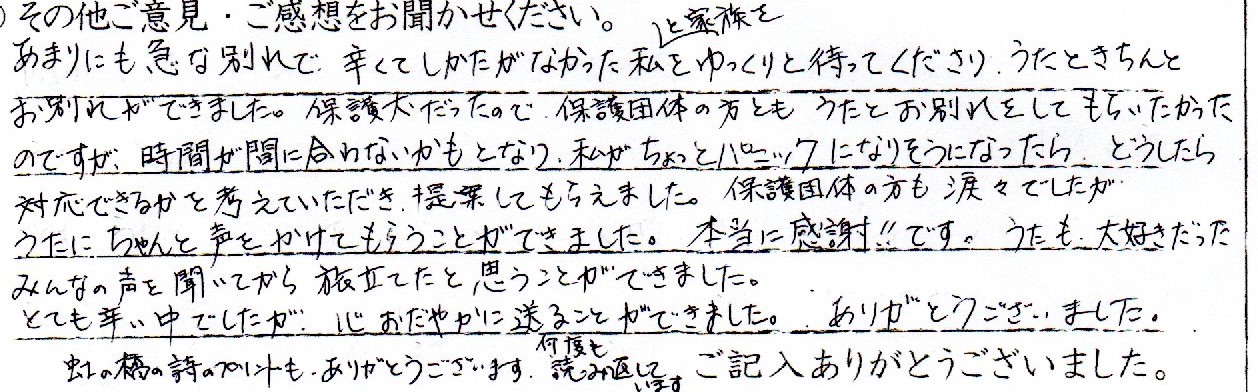 その他ご意見・ご感想をお聞かせください。
と家族を
あまりにも急な別れで、辛くてしかたがなかった私をゆっくりと待ってくださり、うたときちんと
お別れができました。保護犬だったので、保護団体の方とも うたとお別れをしてもらいたかった
のですが、時間が間に合わないかもとなり、私がちょっとパニックになりそうになったら、どうしたら
対応できるかを考えていただき、提案してもらえました。保護団体の方も涙々でしたが
うたにちゃんと声をかけてもらうことができました。本当に感謝!!です。うたも、大好きだった
みんなの声を聞いてから旅立てたと思うことができました。
とても辛い中でしたが、心おだやかに送ることができました。ありがとうございました。
虹の橋の詩のプリントも、ありがとうございます。何度も読み直しています
ご記入ありがとうございました。